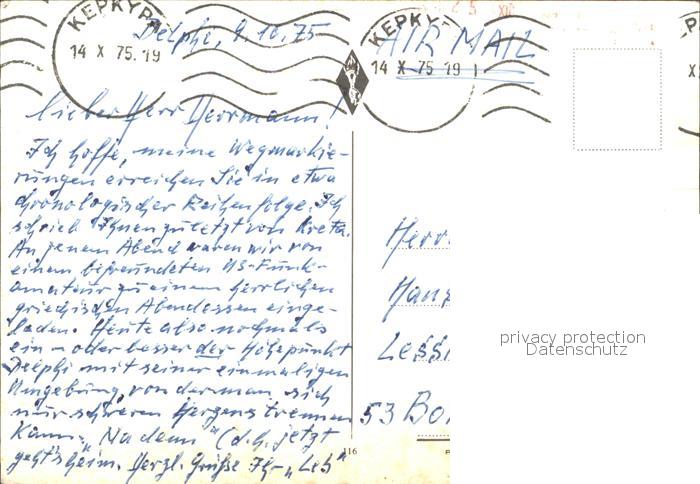 ΚΕΡΚΥΡΑ
14 X 75. 19
Delphi, 9.10.75
ΚΕΡΚΥΡΑ
14 X 75 19
AIR MAIL
Lieber Herr Herrmann!
Ich hoffe, meine Wegmarkie-
rungen erreichen Sie in etwa
chronologischer Reihenfolge. Ich
schrieb Ihnen zuletzt von Kreta.
An jenem Abend waren wir von
einem befreundeten US-Funk-
amateur zu einem herrlichen
griechischen Abendessen einge-
laden. Heute also nochmals
ein – oder besser der Höhepunkt
Delphi mit seiner einmaligen
Umgebung, von der man sich
nur schweren Herzens trennen
kann. "Na denn" (d.h. jetzt
geht's heim. Herzl. Grüße Ihr
Herr
53 Bo
116
privacy protection
Datenschutz